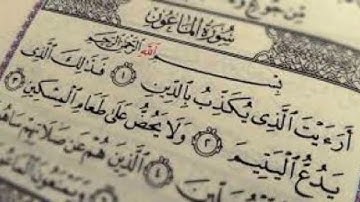 مِّن جُوعٍ
سُورَةُ الْمَاعُونِ
بِسْمِ اللَّهِ الرَّحْمَٰنِ الرَّحِيمِ
أَرَءَيْتَ الَّذِي يُكَذِّبُ بِالدِّينِ ١ فَذَٰلِكَ الَّذِي
يَدُعُّ الْيَتِيمَ ٢ وَلَا يَحُضُّ عَلَىٰ طَعَامِ الْمِسْكِينِ ٣
٤ الَّذِينَ هُمْ عَن صَلَاتِهِمْ
وَيَمْنَعُونَ